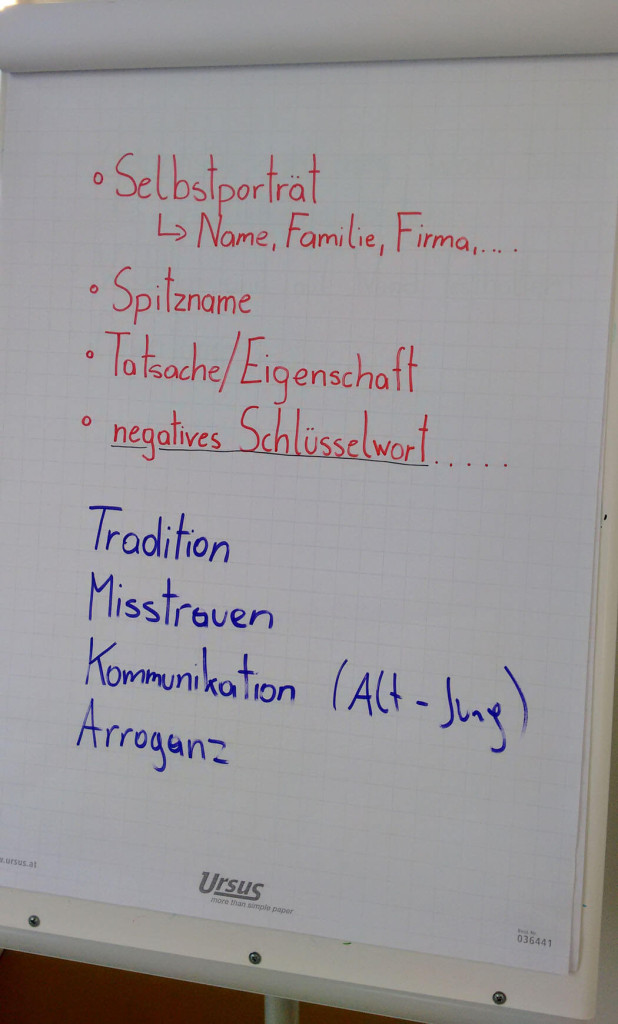 ° Selbstporträt
↳ Name, Familie, Firma,....
° Spitzname
° Tatsache/Eigenschaft
° negatives Schlüsselwort.....
Tradition
Misstrauen
Kommunikation (Alt - Jung)
Arroganz
.ursus.at
Ursus
more than simple paper
036441